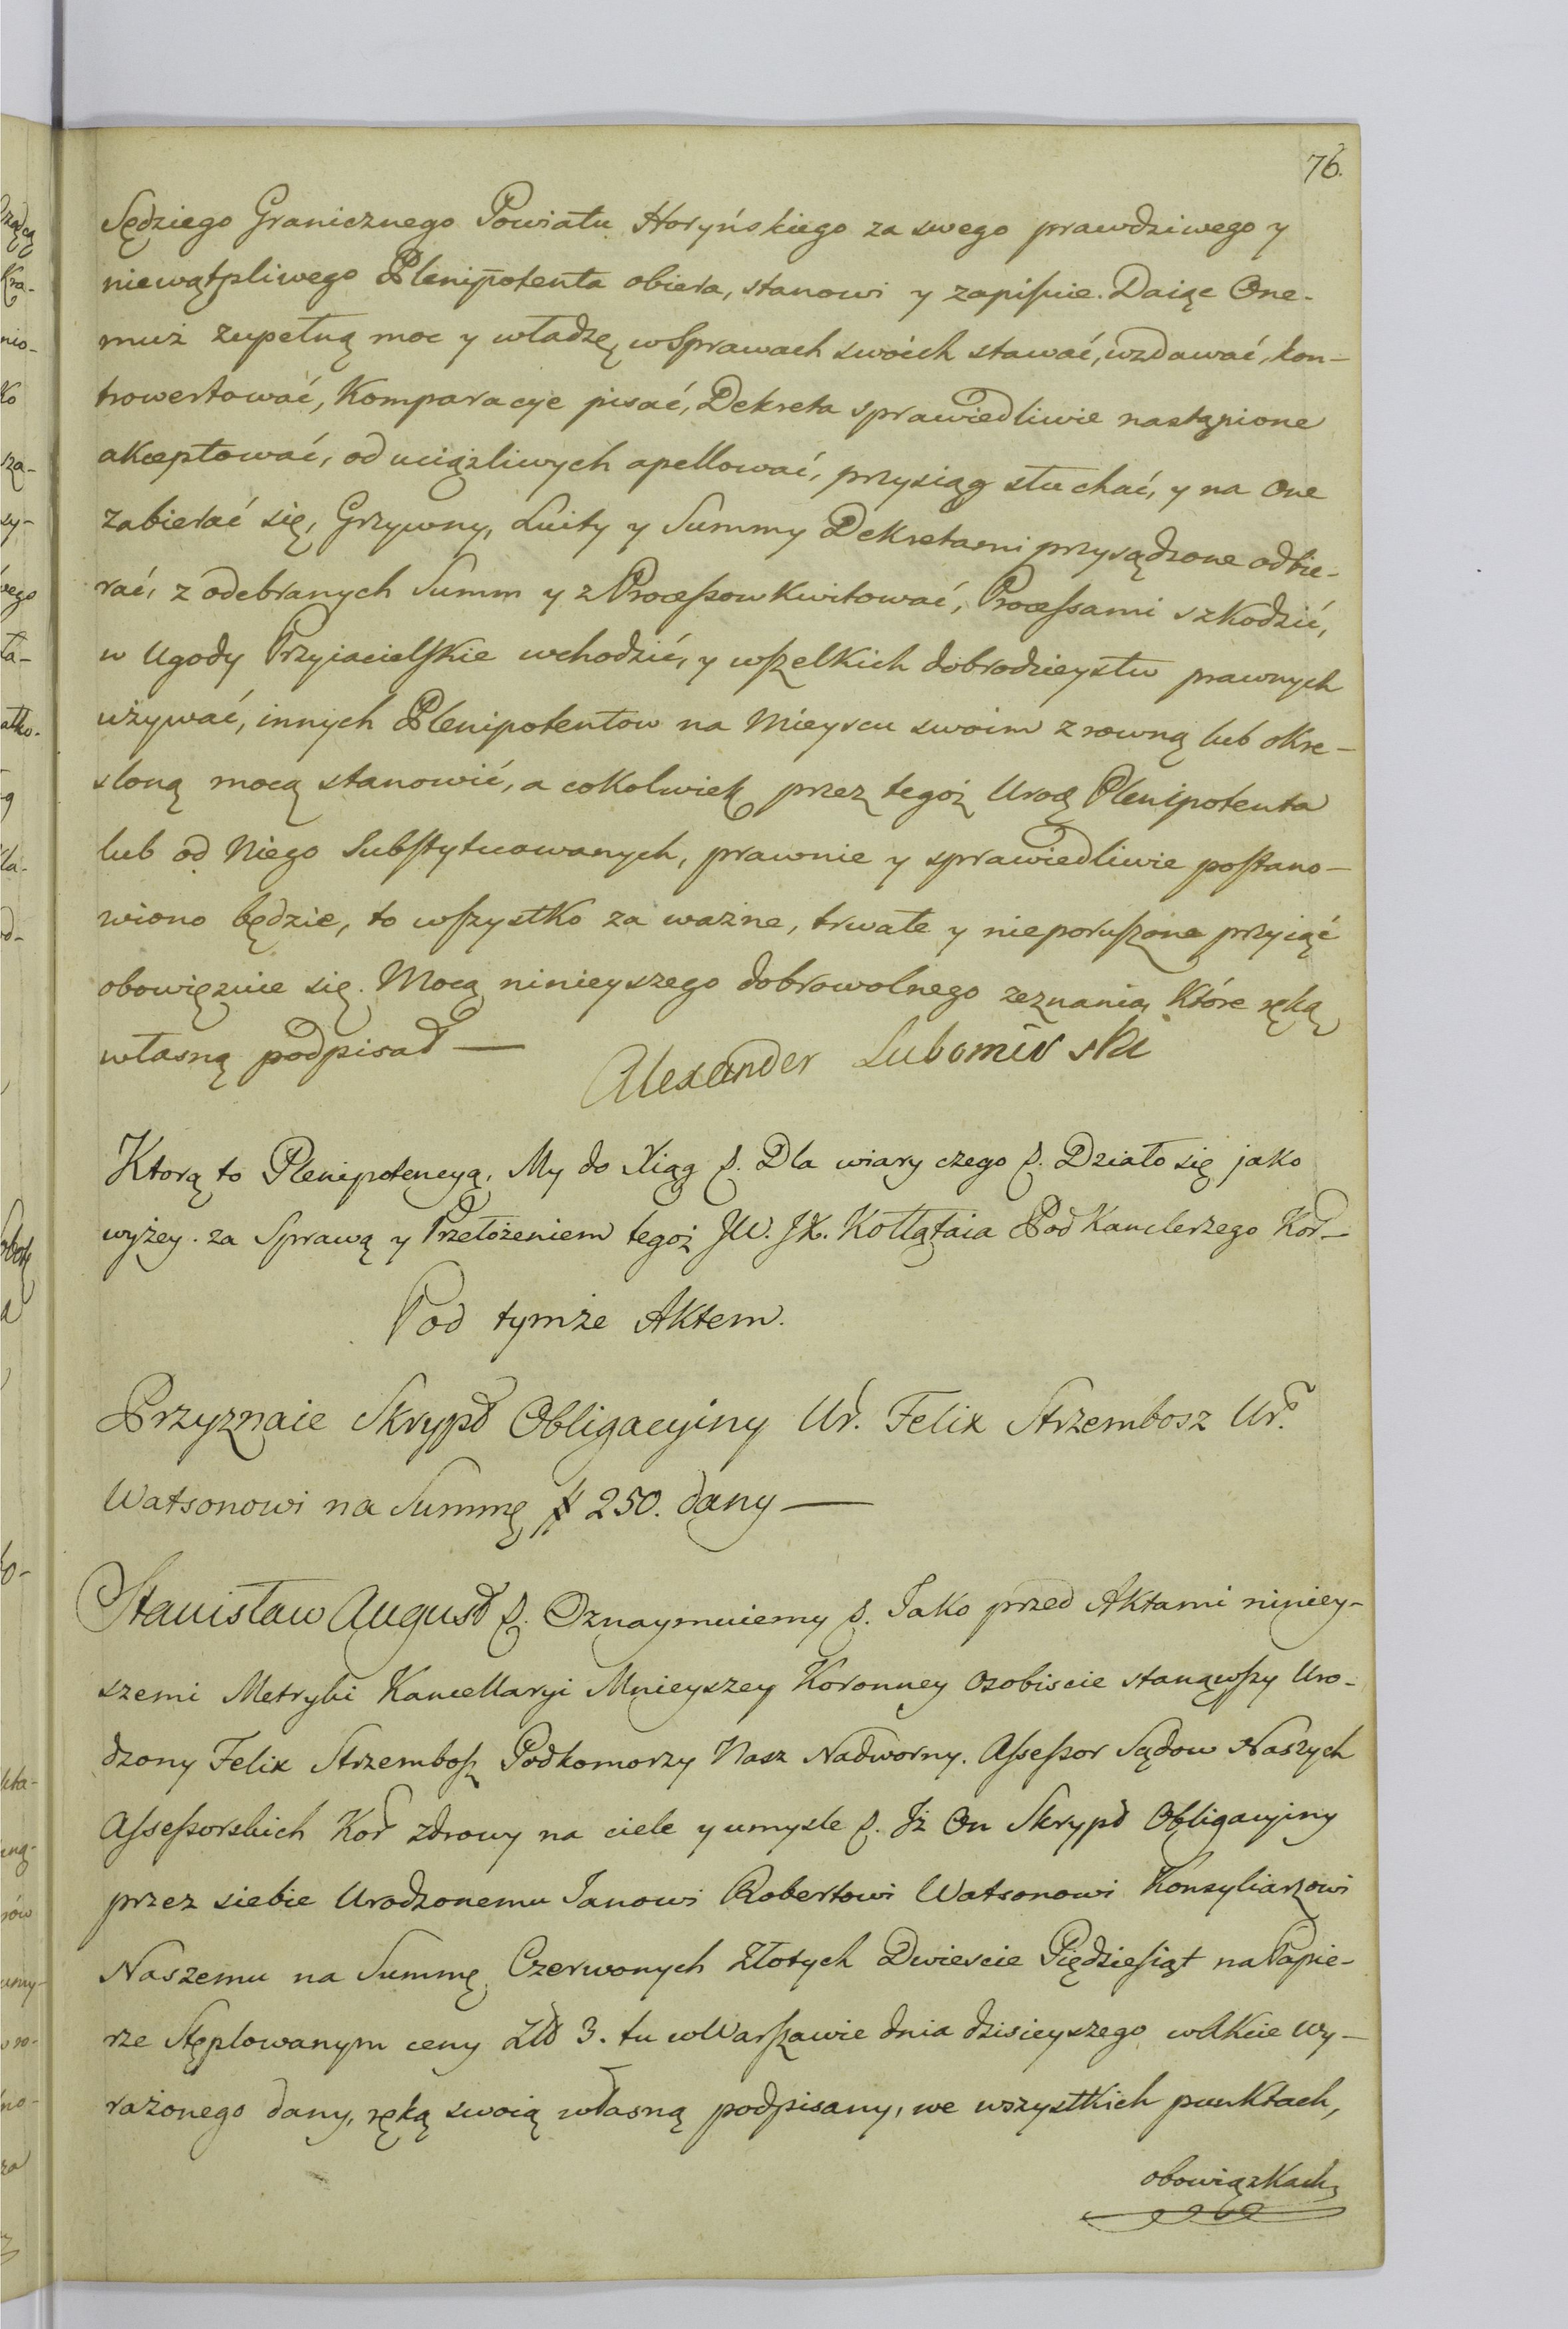 76.
Sędziego Granicznego Powiatu Horyńskiego za swego prawdziwego y
niewątpliwego Plenipotenta obiera, stanowi y zapisuie. Daiąc One-
muż zupełną moc y władzę w Sprawach swoich stawać, wzdawać, kon-
trowertować, Komparacye pisać, Dekreta sprawiedliwie nastąpione
akceptować, od uciążliwych apellować, przysiąg słuchać, y na One
zabierać się, Grzywny, Luity y Summy Dekretami przysądzone odbie-
rać, z odebranych Summ y z Processow Kwitować, Processami szkodzić,
w Ugody Przyiacielskie wchodzić, y wszelkich dobrodzieystw prawnych
używać, innych Plenipotentow na Mieyscu swoim z rowną lub okre-
sloną mocą stanowić, a cokolwiek przez tegoż Urodz Plenipotenta
lub od Niego Substytuowanych, prawnie y sprawiedliwie postano-
wiono będzie, to wszystko za ważne, trwałe y nieporuszone przyiąć
obowięzuie się. Mocą ninieyszego dobrowolnego zeznania, Które ręką
własną podpisał —
Alexander Lubomirski
Ktorą to Plenipotencyą, My do Xiąg p. Dla wiary czego p. Działo się jako
wyżey. za Sprawą y Przełożeniem tegoż JW. JX. Kołłątaia PodKanclerzego Kor—
Pod tymże Aktem.
Przyznaie Skrypt Obligacyiny Ur. Felix Strzembosz Ur.
Watsonowi na Summę # 250. dany —
Stanisław August p. Oznaymuiemy p. Jako przed Aktami niniey-
szemi Metryki Kancellaryi Mnieyszey Koronney osobiscie stanąwszy Uro-
dzony Felix Strzembosz Podkomorzy Nasz Nadworny. Assessor Sądow Naszych
Assessorskich Kor zdrowy na ciele y umysle p. Jż On Skrypt Obligacyiny
przez siebie Urodzonemu Janowi Robertowi Watsonowi Konsyliarzowi
Naszemu na Summę Czerwonych Złotych Dwiescie Pięddziesiąt na Papie-
rze Stęplowanym ceny Zło 3. tu w Warszawie dnia dzisieyszego w Akcie wy-
rażonego dany, ręką swoią własną podpisany, we wszystkich punktach,
obowiązkach,